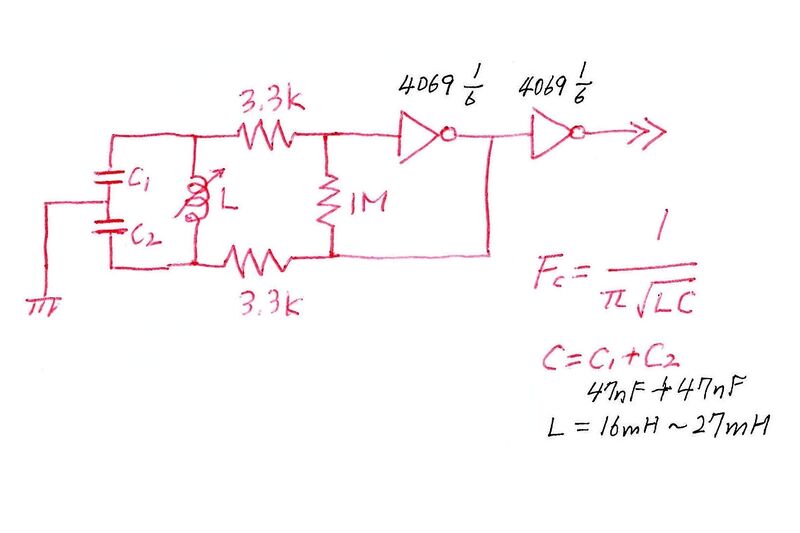 4069 1/6 4069 1/6
3.3K
C1
L
1M
C2
3.3K
Fc = 1/π√LC
C = C1 + C2
47nF + 47nF
L = 16mH ~ 27mH